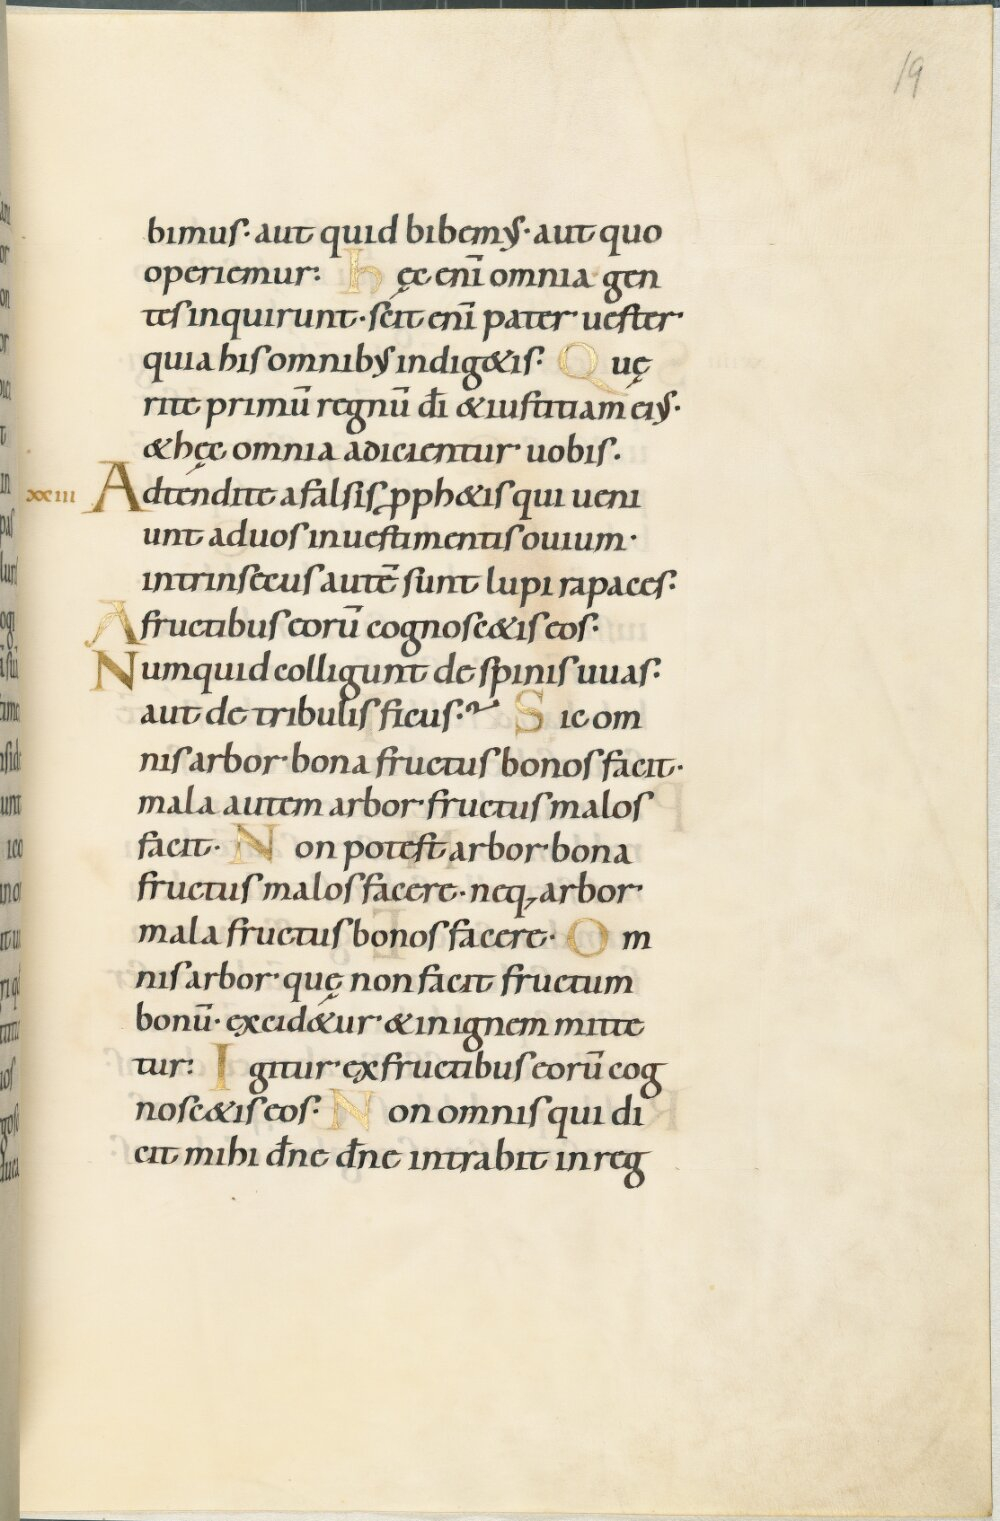 19
bimus· aut quid bibemꝰ· aut quo
operiemur: hęc enī omnia gen
tes inquirunt· scit enī pater uester·
quia his omnibꝰ indig&is· Quę
rite primū regnū d̄i &iustitiam eiꝰ·
&hęc omnia adicientur uobis·
xxiii Adtendite a falsis ꝓph&is qui ueni
unt ad uos in uestimentis ouium·
intrinsecus autē sunt lupi rapaces·
A fructibus eorū cognosc&is eos·
Numquid colligunt de spinis uuas·
aut de tribulis ficus· Sic om
nis arbor bona fructus bonos facit·
mala autem arbor fructus malos
facit· Non potest arbor bona
fructus malos facere· neq, arbor
mala fructus bonos facere· Om
nis arbor quę non facit fructum
bonū· excid&ur &in ignem mitte
tur: Igitur ex fructibus eorū cog
nosc&is eos· Non omnis qui di
cit mihi dn̄e dn̄e intrabit in reg